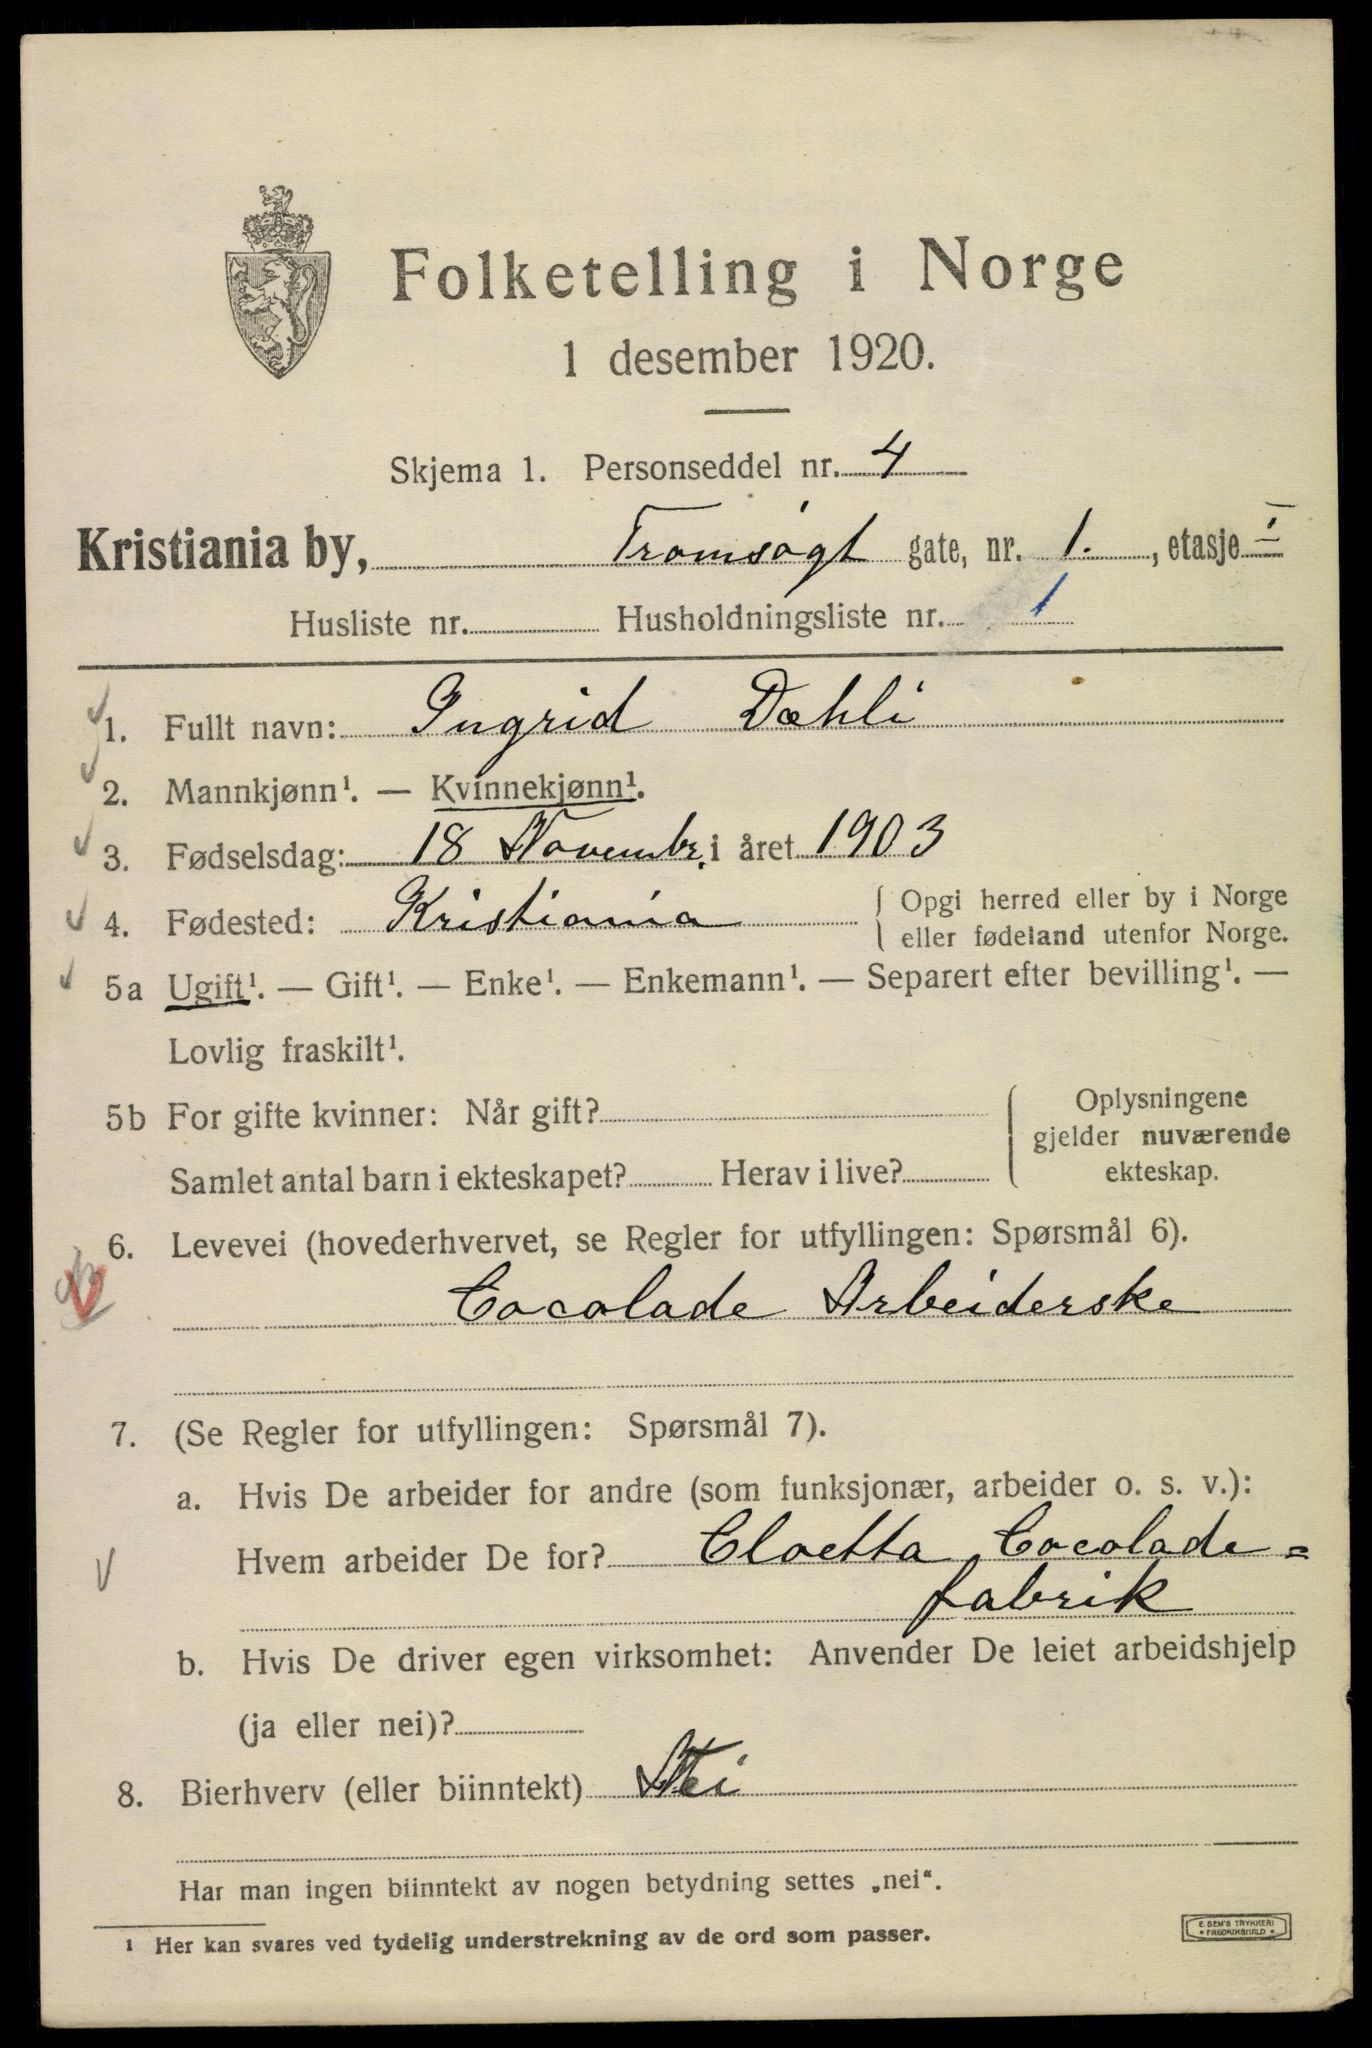 Folketelling i Norge
1 desember 1920.
Skjema 1. Personseddel nr. 4
Kristiania by, Tromsøgt gate, nr. 1. , etasje I
Husliste nr. Husholdningsliste nr. 1
1. Fullt navn: Ingrid Dæhli
2. Mannkjønn¹. — Kvinnekjønn¹.
3. Fødselsdag: 18 Novembr. i året 1903
4. Fødested: Kristiania { Opgi herred eller by i Norge
eller fødeland utenfor Norge.
5a Ugift¹. — Gift¹. — Enke¹. — Enkemann¹. — Separert efter bevilling¹. —
Lovlig fraskilt¹.
5b For gifte kvinner: Når gift? { Oplysningene
gjelder nuværende
Samlet antal barn i ekteskapet? Herav i live? ekteskap.
6. Levevei (hovederhvervet, se Regler for utfyllingen: Spørsmål 6).
Cocolade Arbeiderske
7. (Se Regler for utfyllingen: Spørsmål 7).
a. Hvis De arbeider for andre (som funksjonær, arbeider o. s. v.):
Hvem arbeider De for? Cloetta Cocolade=
fabrik
b. Hvis De driver egen virksomhet: Anvender De leiet arbeidshjelp
(ja eller nei)?
8. Bierhverv (eller biinntekt) Nei
Har man ingen biinntekt av nogen betydning settes „nei“.
¹ Her kan svares ved tydelig understrekning av de ord som passer.
E. SEM'S TRYKKERI
* FREDRIKSHALD *